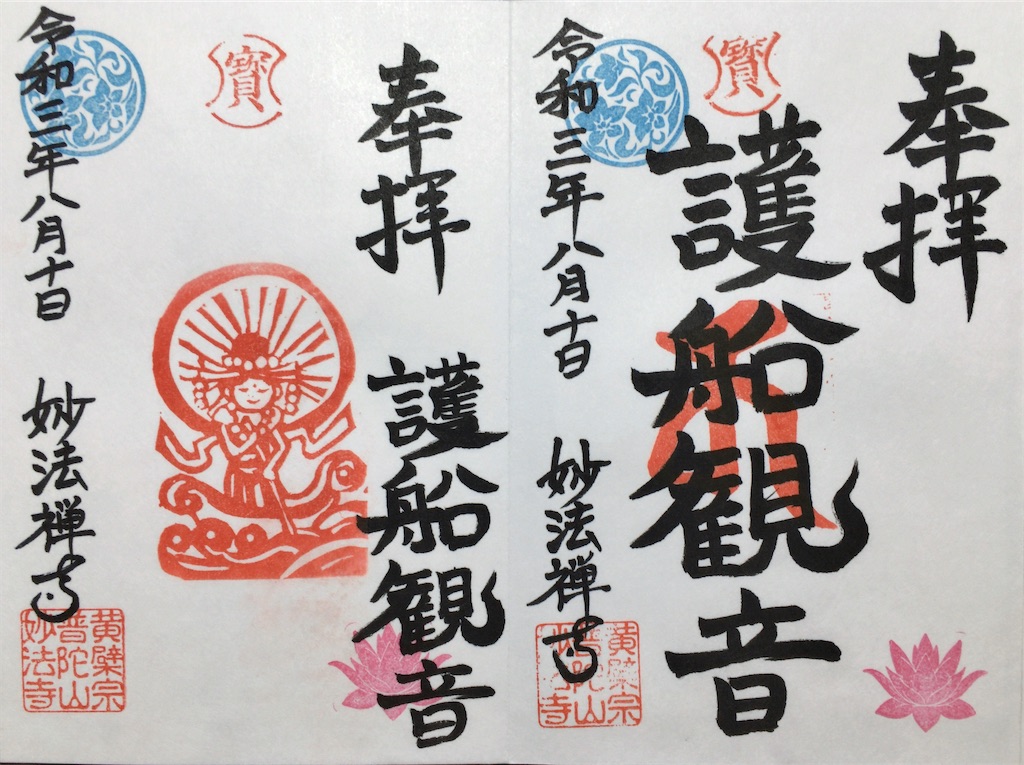 奉拝
寶
護船観音
令和三年八月十日
妙法禅寺
黄檗宗
普陀山
妙法寺
奉拝
護船観音
寶
令和三年八月十日
妙法禅寺
黄檗宗
普陀山
妙法寺